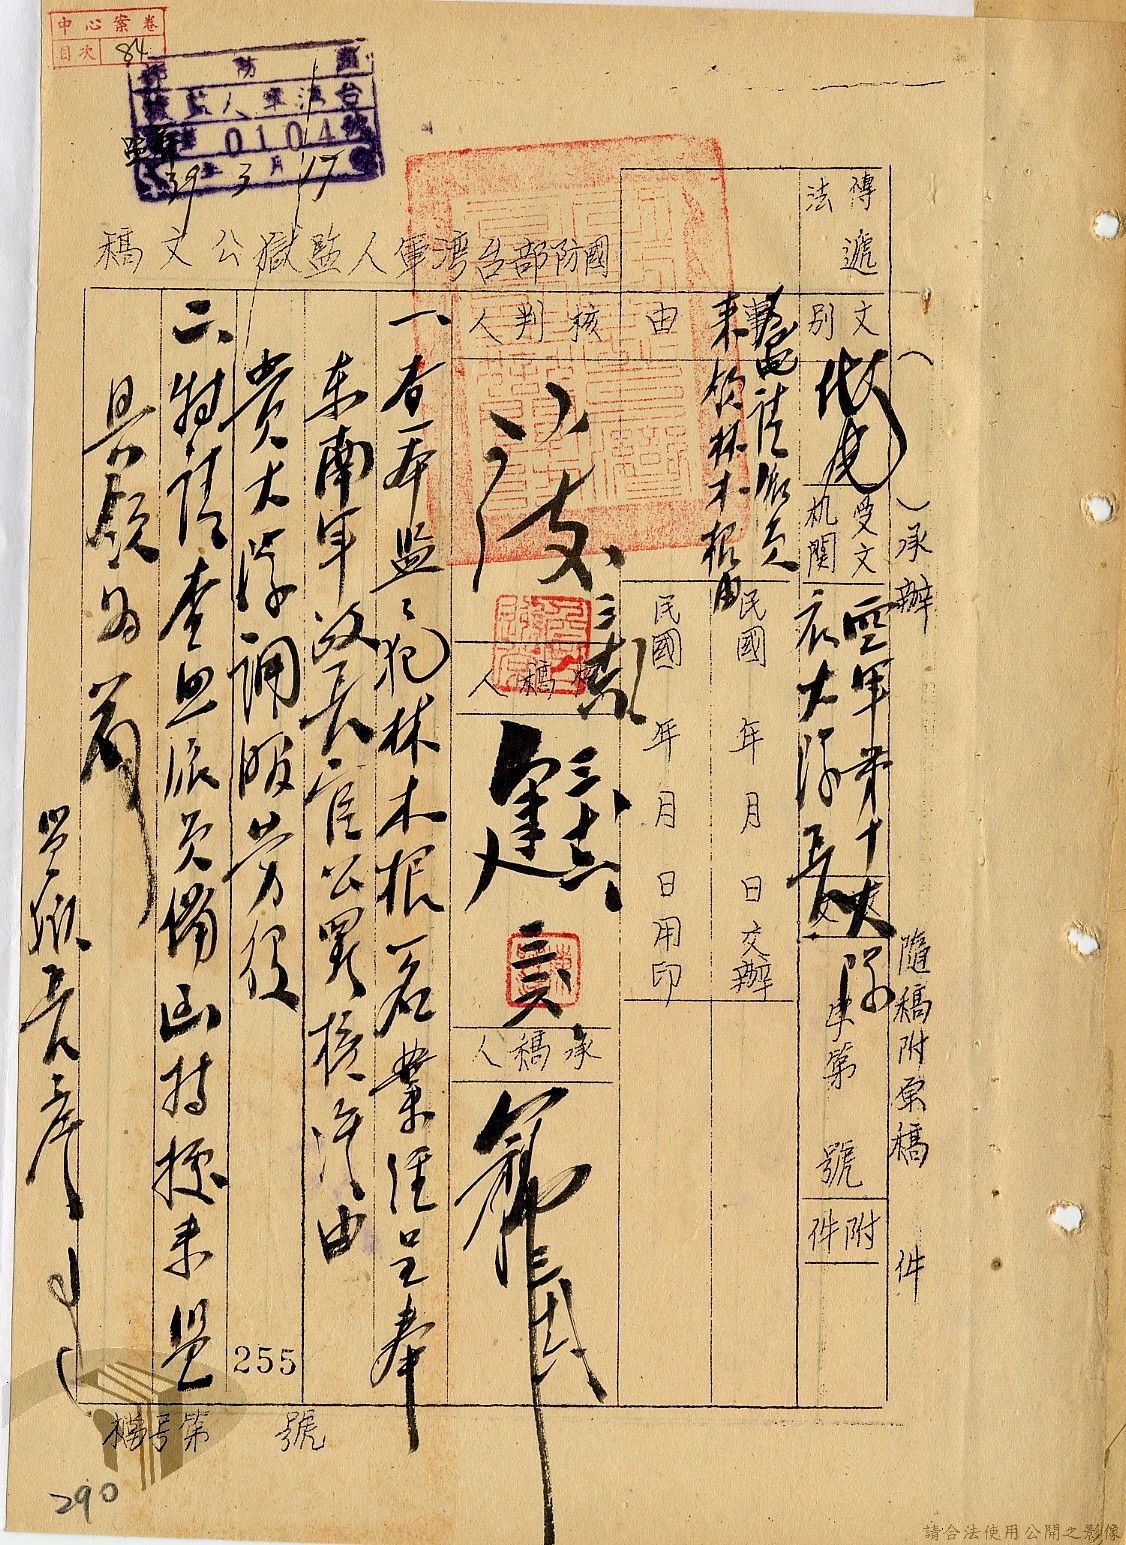 中心案卷
目次 84
國防部
台灣軍人監獄
0104號
39 3月17
國防部台灣軍人監獄公文稿
傳遞法
文別
代電
受文机關
空軍第十大隊
衣大隊長
字第 號
附件
(   )承辦
隨稿附原稿 件
事由
為電請派員
來領林木根由
民國 年 月 日交辦
民國 年 月 日用印
核判人
核稿人
承稿人
一、查本監監犯林木根一名業經呈奉
東南軍政長官公署核准由
貴大隊調服勞役
二、特請查照派員備函持據來監
具領為荷
監獄長
255
稿号第 號
290
請合法使用公開之影像